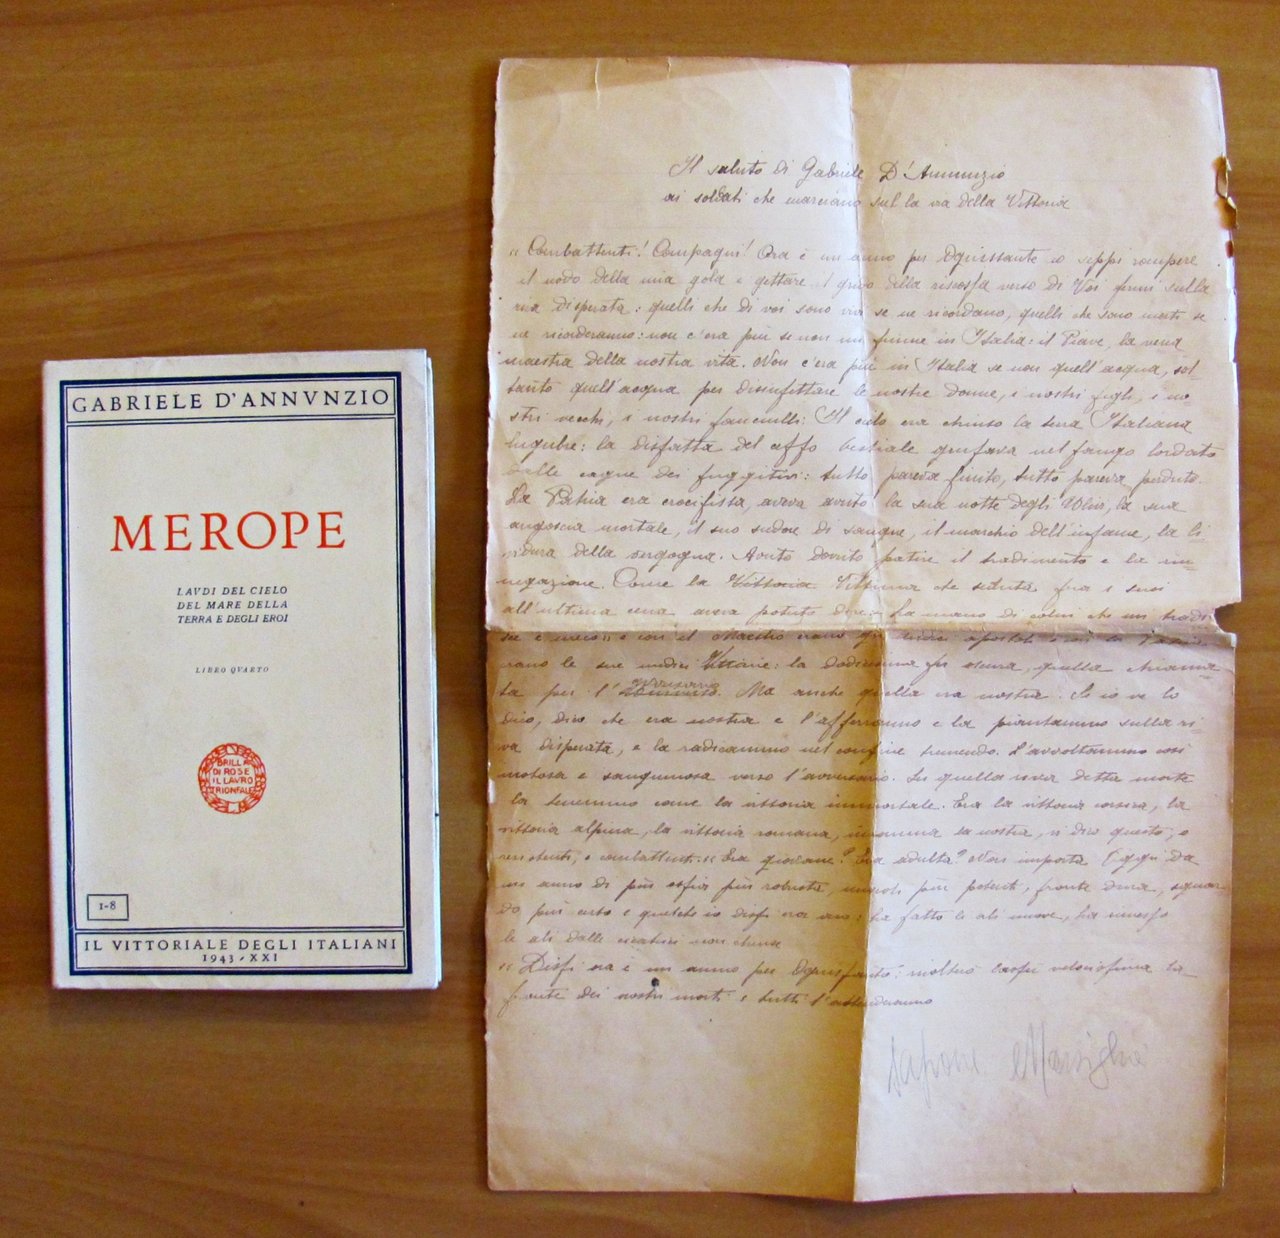 GABRIELE D'ANNVNZIO
MEROPE
LAVDI DEL CIELO
DEL MARE DELLA
TERRA E DEGLI EROI
LIBRO QVARTO
DI ROSE
IL LAVRO
TRIONFALE
1-8
IL VITTORIALE DEGLI ITALIANI
1943 - XXI
Il saluto di Gabriele D'Annunzio
ai soldati che marciano sulla via della Vittoria
"Combattenti! Compagni! Ora è un anno per Ognissanto io seppi rompere
il nodo della mia gola e gettare il grido della riscossa verso di Voi fermi sulla
riva disperata: quelli che di voi sono vivi se ne ricordano, quelli che sono morti se
ne ricorderanno: non c'era più se non un fiume in Italia: il Piave, la vena
maestra della nostra vita. Non c'era più in Italia se non quell'acqua, sol-
tanto quell'acqua per dissettare le nostre donne, i nostri figli, i no
stri vecchi, i nostri fanciulli. Il cielo era chiuso la sera Italiana
lugubre: la disfatta del ceffo bestiale grufava nel fango lordato
dalle orme dei fuggitivi: tutto pareva finito, tutto pareva perduto.
La Patria era crocifissa, aveva avuto la sua notte degli Ulivi, la sua
angoscia mortale, il suo sudore di sangue, il marchio dell'infame, la li-
vidura della vergogna. Avuto dovuto patire il tradimento e la rin
negazione. Come la Vittima che seduta fra i suoi
all'ultima cena aveva potuto dire: la mano di colui che mi tradi
sce è meco e con il Maestro erano gli undici apostoli e con la Patria
erano le sue undici Vittorie: la dodicesima fu oscura, quella chiama
ta per l'avversario. Ma anche quella era nostra. Se io ve lo
dico, dico che era nostra e l'afferrammo e la piantammo sulla ri-
va disperata, e la radicammo nel confine tremendo. L'avvoltammo così
motosa e sanguinosa verso l'avversario. In quella riva detta morte
la tenemmo come la vittoria immortale. Era la vittoria corsica, la
vittoria alpina, la vittoria romana, insomma la nostra, vi dico questo, o
resistenti, o combattenti: Era giovane? Era adulta? Non importa. Oggi da
un anno di più essa è più robusta, muscoli più potenti, fronte dura, sguar
do più certo e quelche io dissi era vero: ha fatto le ali nuove, ha messo
le ali dalle cicatrici non chiuse
"Dissi ora è un anno per Ognissanto: moltro velocissima la
fronte dei nostri morti e tutti l'attenderanno
Sapone Marsiglia